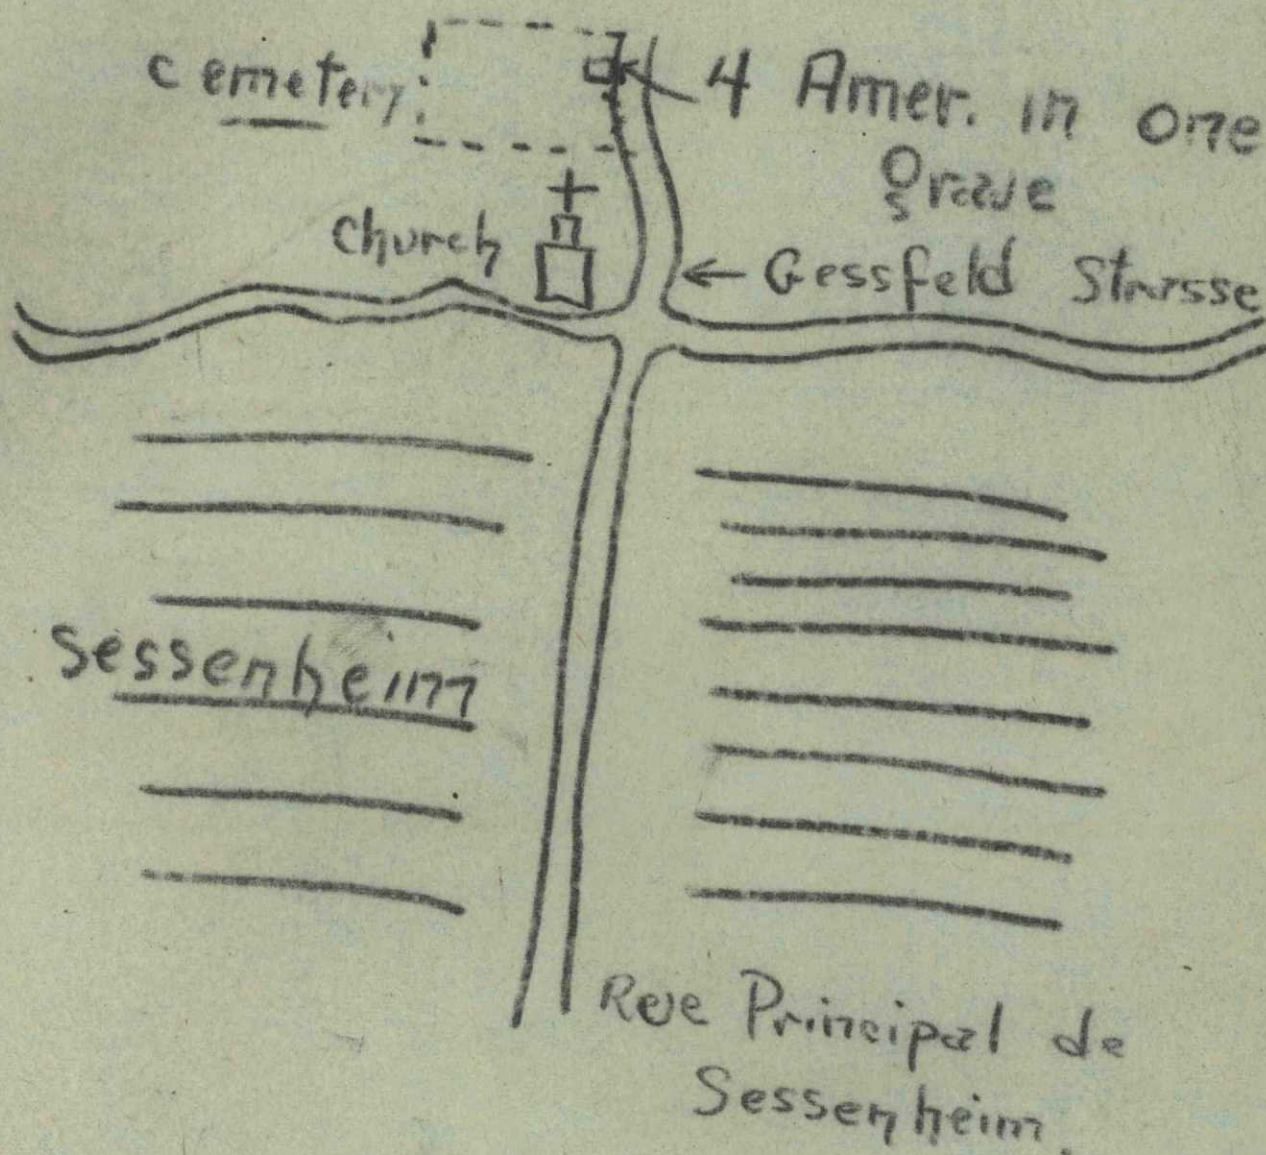 cemetery
4 Amer. in one
grave
church
← Gessfeld Strasse
Sessenheim
Rue Principal de
Sessenheim.